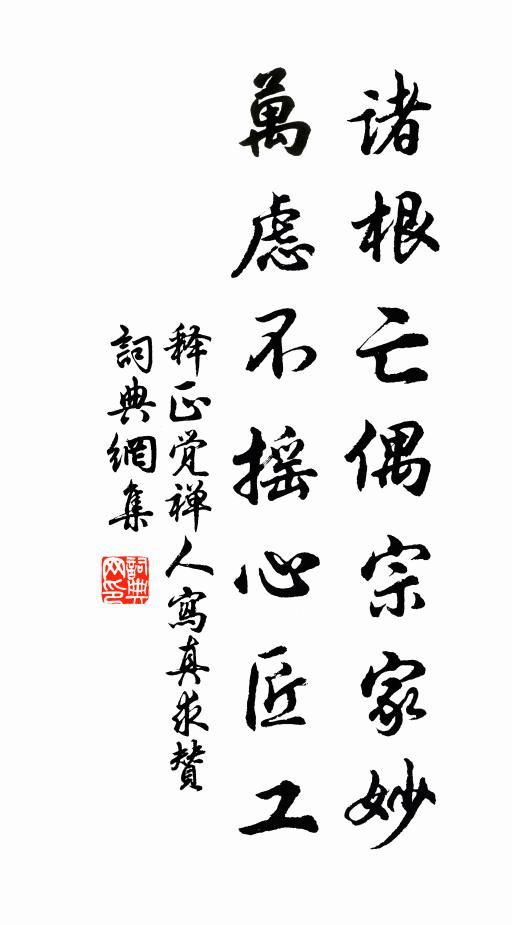 诸根亡偶宗家妙
萬慮不摇心匠工
释正覚禅人寫真求賛
詞典網集
詞典网印